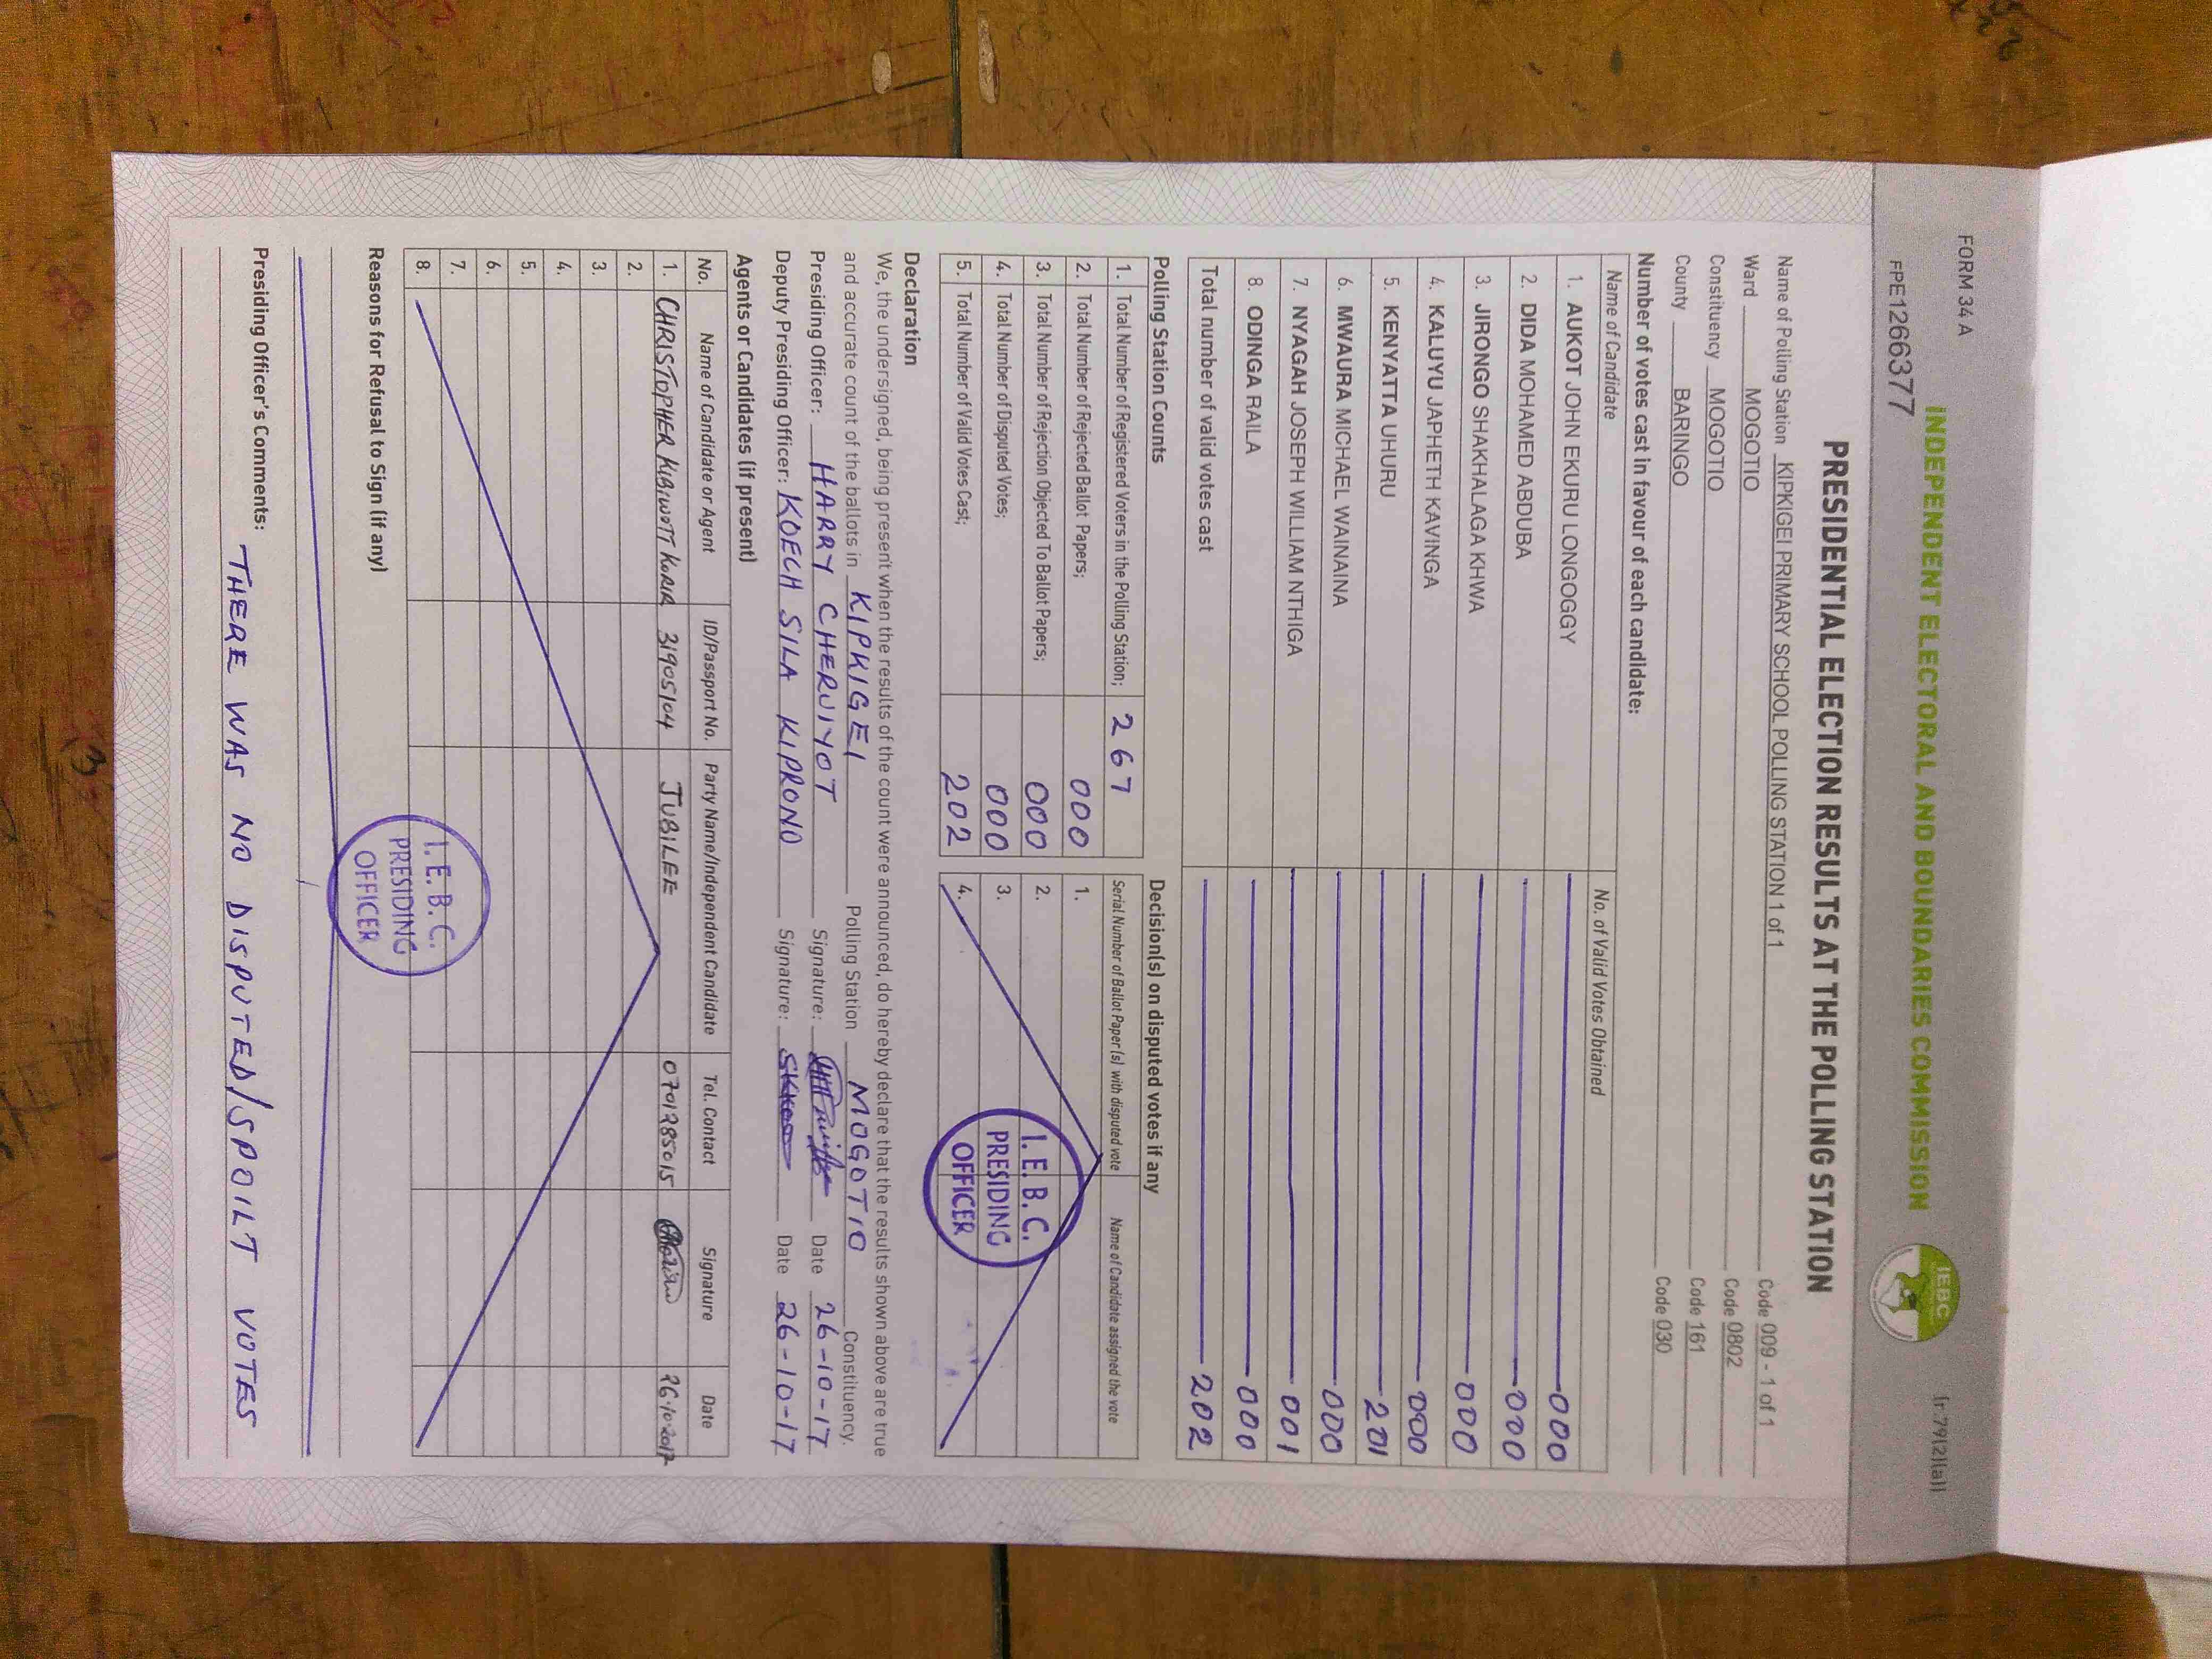 FORM 34 A
(r.79(2)(a))
INDEPENDENT ELECTORAL AND BOUNDARIES COMMISSION
IEBC
FPE1266377
PRESIDENTIAL ELECTION RESULTS AT THE POLLING STATION
Name of Polling Station KIPKIGEI PRIMARY SCHOOL POLLING STATION 1 of 1 Code 009 - 1 of 1
Ward MOGOTIO Code 0802
Constituency MOGOTIO Code 161
County BARINGO Code 030
Number of votes cast in favour of each candidate:
Name of Candidate No. of Valid Votes Obtained
1. AUKOT JOHN EKURU LONGOGGY 000
2. DIDA MOHAMED ABDUBA 000
3. JIRONGO SHAKHALAGA KHWA 000
4. KALUYU JAPHETH KAVINGA 000
5. KENYATTA UHURU 201
6. MWAURA MICHAEL WAINAINA 000
7. NYAGAH JOSEPH WILLIAM NTHIGA 001
8. ODINGA RAILA 000
Total number of valid votes cast 202
Polling Station Counts
1. Total Number of Registered Voters in the Polling Station; 267
2. Total Number of Rejected Ballot Papers; 000
3. Total Number of Rejection Objected To Ballot Papers; 000
4. Total Number of Disputed Votes; 000
5. Total Number of Valid Votes Cast; 202
Decision(s) on disputed votes if any
Serial Number of Ballot Paper(s) with disputed vote Name of Candidate assigned the vote
1.
2.
3.
4.
I. E. B. C.
PRESIDING
OFFICER
Declaration
We, the undersigned, being present when the results of the count were announced, do hereby declare that the results shown above are true
and accurate count of the ballots in KIPKIGEI Polling Station MOGOTIO Constituency.
Presiding Officer: HARRY CHERUIYOT Signature: Date 26-10-17
Deputy Presiding Officer: KOECH SILA KIPRONO Signature: Date 26-10-17
Agents or Candidates (if present)
No. Name of Candidate or Agent ID/Passport No. Party Name/Independent Candidate Tel. Contact Signature Date
1. CHRISTOPHER 31905104 JUBILEE 0701285015 26.10.2017
2.
3.
4.
5.
6.
7.
8.
I. E. B. C.
PRESIDING
OFFICER
Reasons for Refusal to Sign (if any)
Presiding Officer's Comments:
THERE WAS NO DISPUTED/SPOILT VOTES